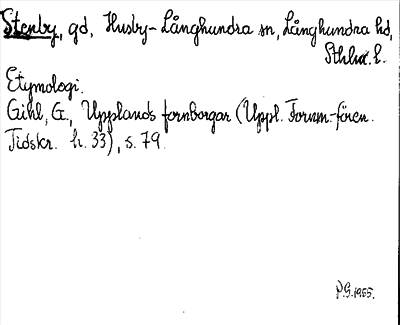 Stenby, gd, Husby-Långhundra sn, Långhundra hd,
Sthlm. l.
Etymologi.
Gihl, G., Upplands fornborgar (Uppl. Fornm.-fören.
Tidskr. h. 33), s. 79.
P.G. 1955.